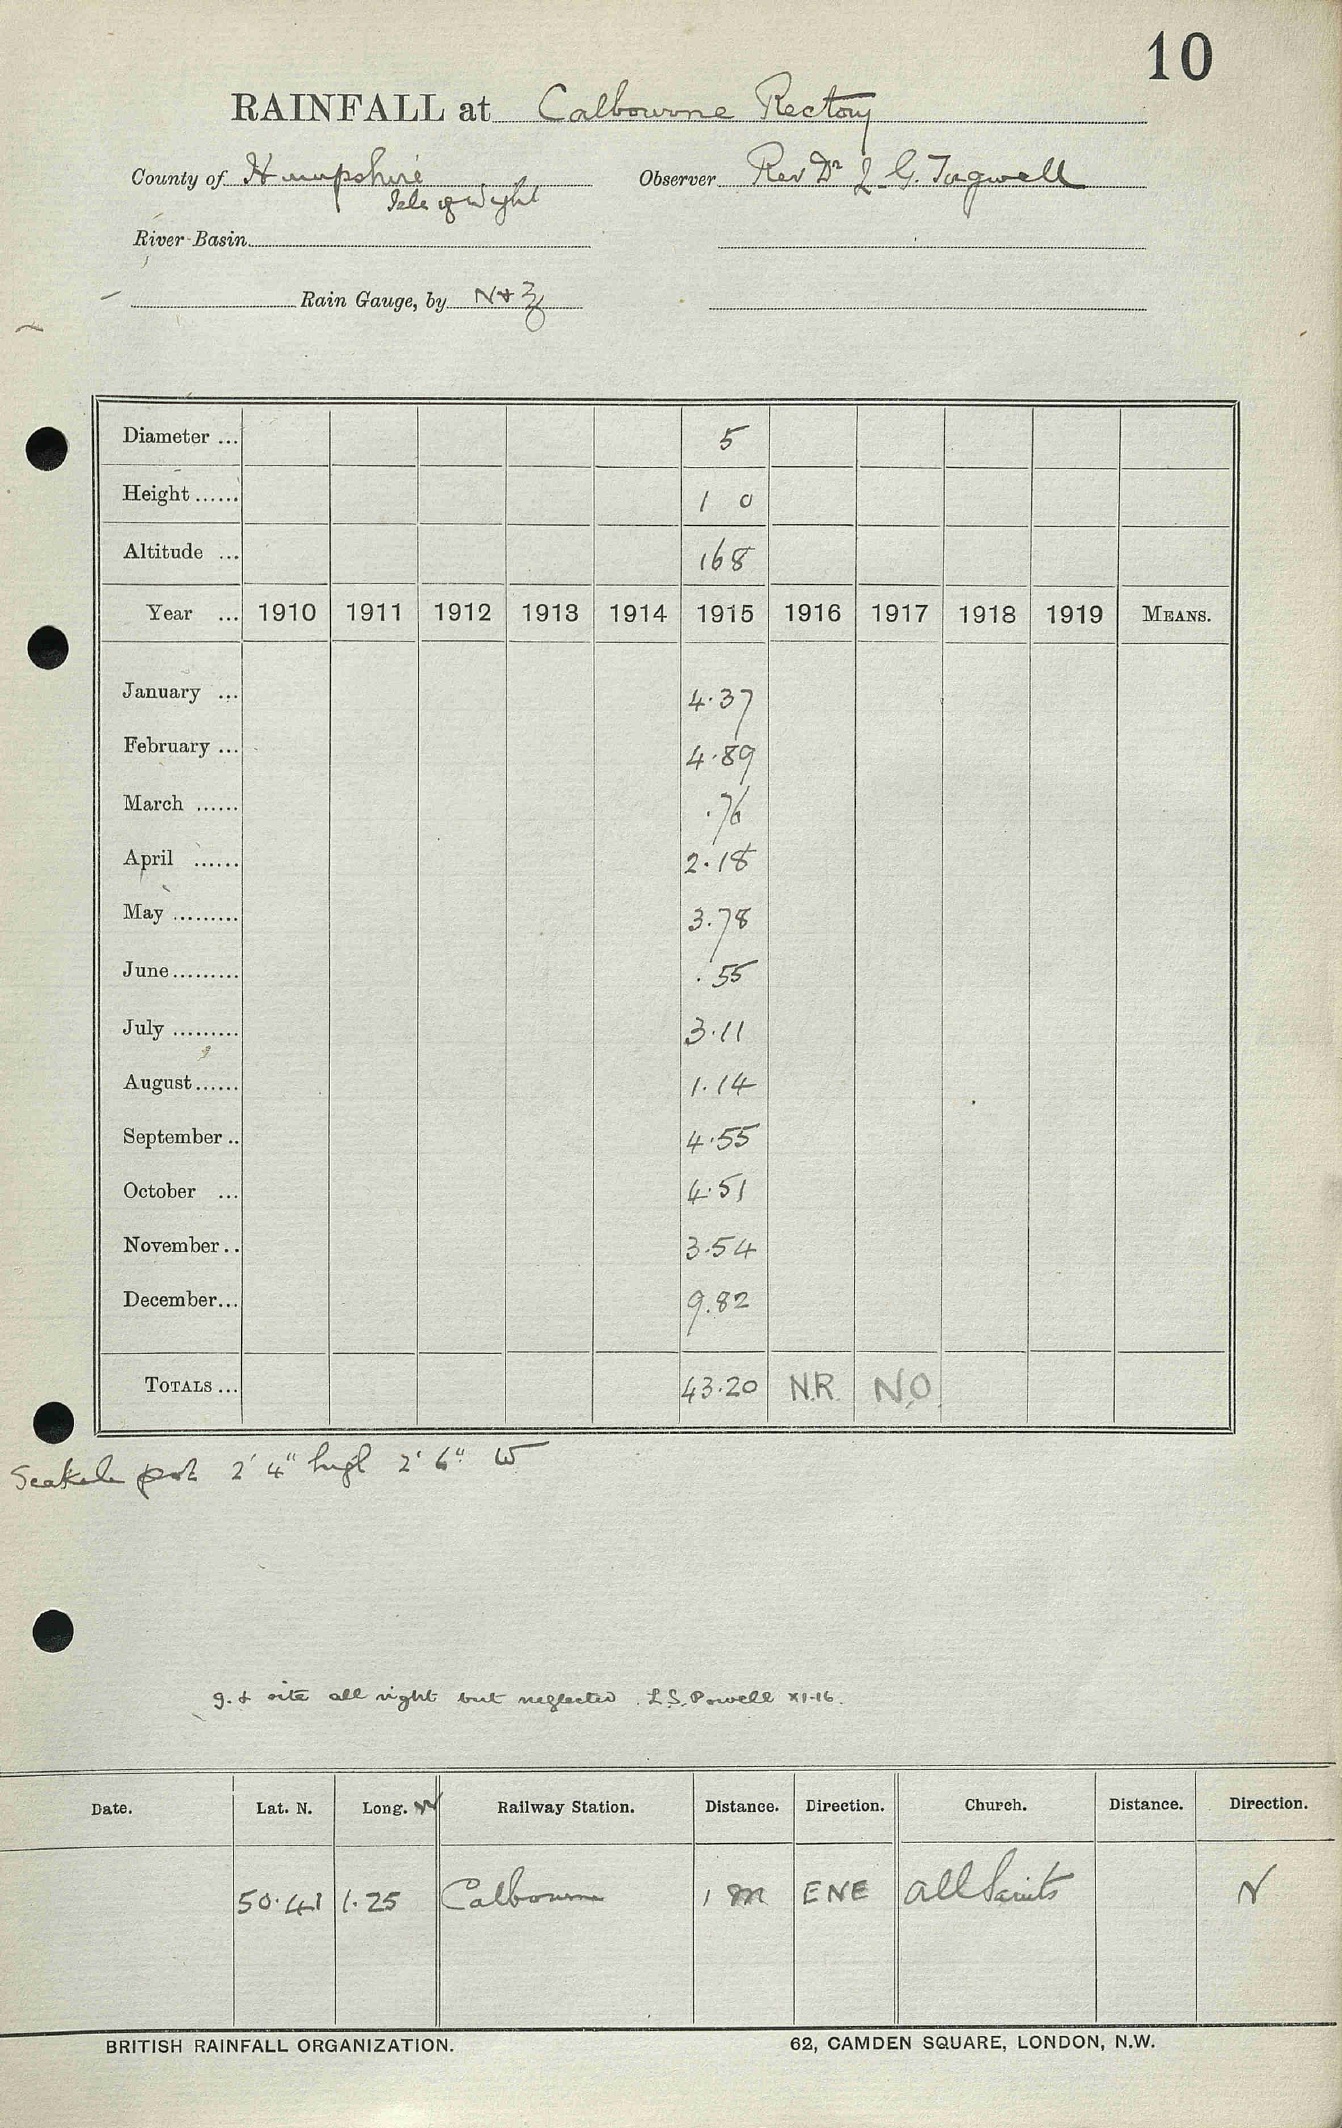 10
RAINFALL at Calbourne Rectory
County of Hampshire Observer Rev Dr J. G. Tugwell
Isle of Wight
River Basin
Rain Gauge, by N & Z
Diameter ... 5
Height ...... 1 0
Altitude ... 168
Year ... 1910 1911 1912 1913 1914 1915 1916 1917 1918 1919 MEANS.
January ... 4.37
February ... 4.89
March ...... .76
April ...... 2.18
May ......... 3.78
June ......... .55
July ......... 3.11
August ...... 1.14
September .. 4.55
October ... 4.51
November .. 3.54
December ... 9.82
TOTALS ... 43.20 N.R. N.O.
Seakale pot 2' 4" high 2' 6" W
g. & site all right but neglected. L.S. Powell XI-16.
Date. Lat. N. Long. W Railway Station. Distance. Direction. Church. Distance. Direction.
50.41 1.25 Calbourne 1 m ENE All Saints N
BRITISH RAINFALL ORGANIZATION. 62, CAMDEN SQUARE, LONDON, N.W.